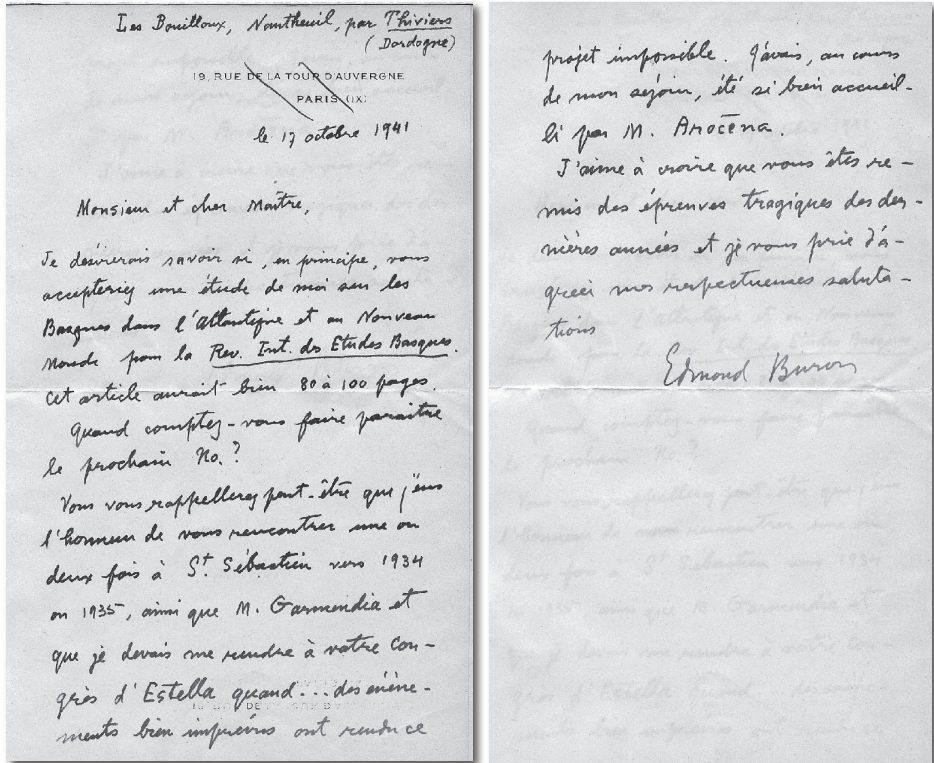 Les Bouilloux, Nantheuil, par Thiviers
(Dordogne)
19, RUE DE LA TOUR D'AUVERGNE
PARIS (IX)
le 17 octobre 1941
Monsieur et cher Maître,
Je désirerais savoir si, en principe, vous
accepteriez une étude de moi sur les
Basques dans l'Atlantique et au Nouveau
Monde pour la Rev. Int. des Etudes Basques.
Cet article aurait bien 80 à 100 pages.
Quand comptez-vous faire paraître
le prochain No.?
Vous vous rappellerez peut-être que j'eus
l'honneur de vous rencontrer une ou
deux fois à St. Sébastien vers 1934
ou 1935, ainsi que M. Garmendia et
que je devais me rendre à votre con-
grès d'Estella quand... des événe-
ments bien imprévus ont rendu ce
projet impossible. J'avais, au cours
de mon séjour, été si bien accueil-
li par M. Arocena.
J'aime à croire que vous êtes re-
mis des épreuves tragiques des der-
nières années et je vous prie d'a-
gréer mes respectueuses saluta-
tions
Edmond Buron